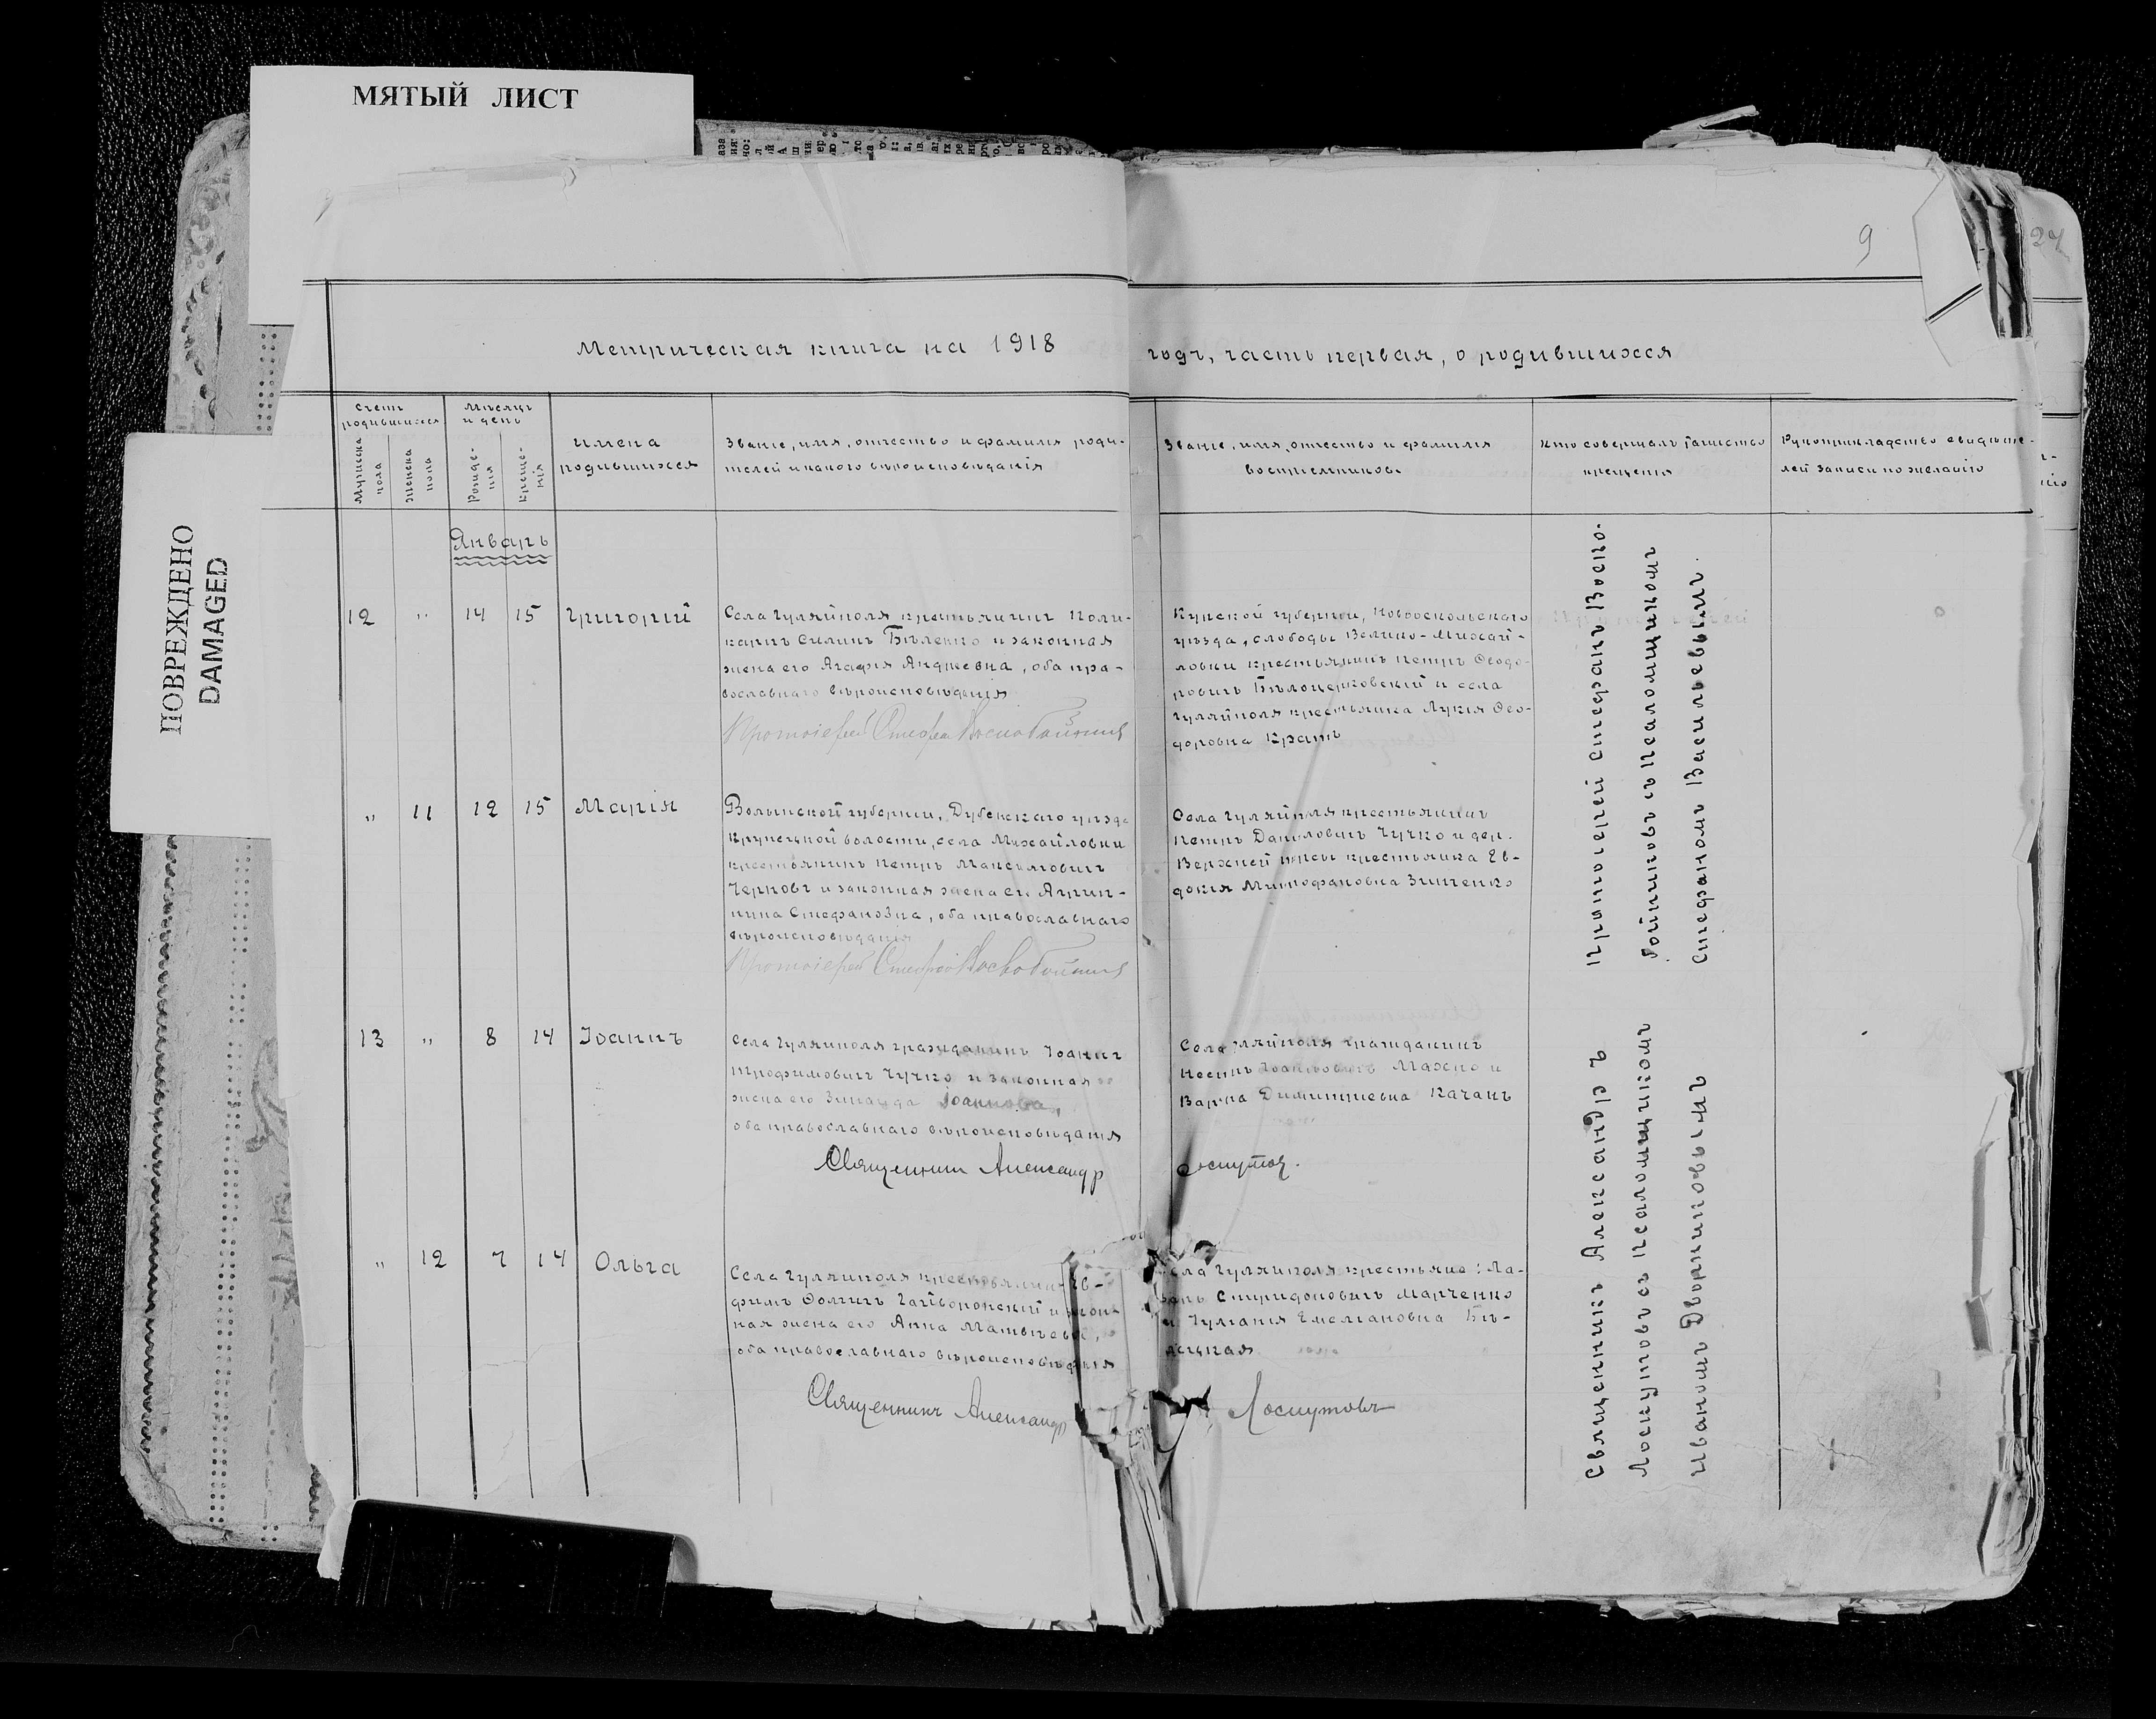 МЯТЫЙ ЛИСТ
ПОВРЕЖДЕНО
DAMAGED
9
24
Метрическая книга на 1918
годъ, часть первая, о родившихся
Счетъ
родившихся
Мужеска
пола
Женска
пола
Мѣсяцъ
и день
Рожде-
нія
Креще-
нія
Имена
родившихся
Званіе, имя, отчество и фамилія роди-
телей и какого вѣроисповѣданія
Званіе, имя, отчество и фамилія
воспріемниковъ
Кто совершалъ таинство
крещенія
Рукоприкладство свидѣте-
лей записи по желанію
Январь
12 " 14 15 Григорій
Села Гуляйполя крестьянинъ Поли-
карпъ Силинъ Бѣленко и законная
жена его Агафія Андреевна, оба пра-
вославнаго вѣроисповѣданія
Протоіерей Стефанъ Воскобойниковъ
Курской губерніи, Новооскольскаго
уѣзда, слободы Велико-Михай-
ловки крестьянинъ Петръ Ѳеодо-
ровичъ Бѣлоцерковскій и села
Гуляйполя крестьянка Лукія Ѳео-
доровна Кратъ
" 11 12 15 Марія
Волынской губерніи, Дубенскаго уѣзда
Крупецкой волости, села Михайловки
крестьянинъ Петръ Максимовичъ
Черновъ и законная жена его Агрип-
пина Стефановна, оба православнаго
вѣроисповѣданія
Протоіерей Стефанъ Воскобойниковъ
Села Гуляйполя крестьянинъ
Петръ Даниловичъ Чучко и дер.
Верхней Терсы крестьянка Ев-
докія Митрофановна Зинченко
Протоіерей Стефанъ Воско-
бойниковъ съ псаломщикомъ
Стефаномъ Васильевымъ.
13 " 8 14 Іоаннъ
Села Гуляйполя гражданинъ Іоаннъ
Трофимовичъ Чучко и законная
жена его Зинаида Іоаннова,
оба православнаго вѣроисповѣданія
Священникъ Александръ
Лоскутовъ.
Села Гуляйполя гражданинъ
Несторъ Іоанновичъ Махно и
Варвара Димитріевна Качанъ
" 12 7 14 Ольга
Села Гуляйполя крестьянинъ Ев-
фимъ Ѳоминъ Гайворонскій и закон-
ная жена его Анна Матвѣева,
оба православнаго вѣроисповѣданія
Священникъ Александръ
Лоскутовъ
Села Гуляйполя крестьяне: Ла-
Спиридоновичъ Марченко
и Іуліанія Емеліановна Бѣ-
лецкая
Священникъ Александръ
Лоскутовъ съ псаломщикомъ
Иваномъ Дворниковымъ